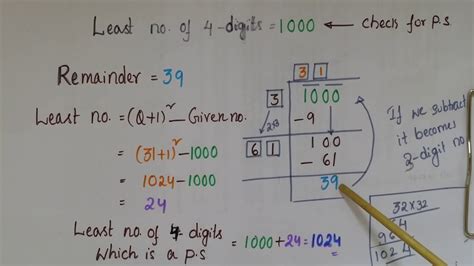 Least no. of 4-digits = 1000 ← check for p.s
Remainder = 39
Least no. = (Q+1)² − Given no.
= (31+1)² − 1000
= 1024 − 1000
= 24
Least no. of 4 digits
which is a p.s = 1000 + 24 = 1024
3 1
3 1000
− 9
2×3
61 100
− 61
39
If we subtract
it becomes
3-digit no
32 × 32
64
96
1024